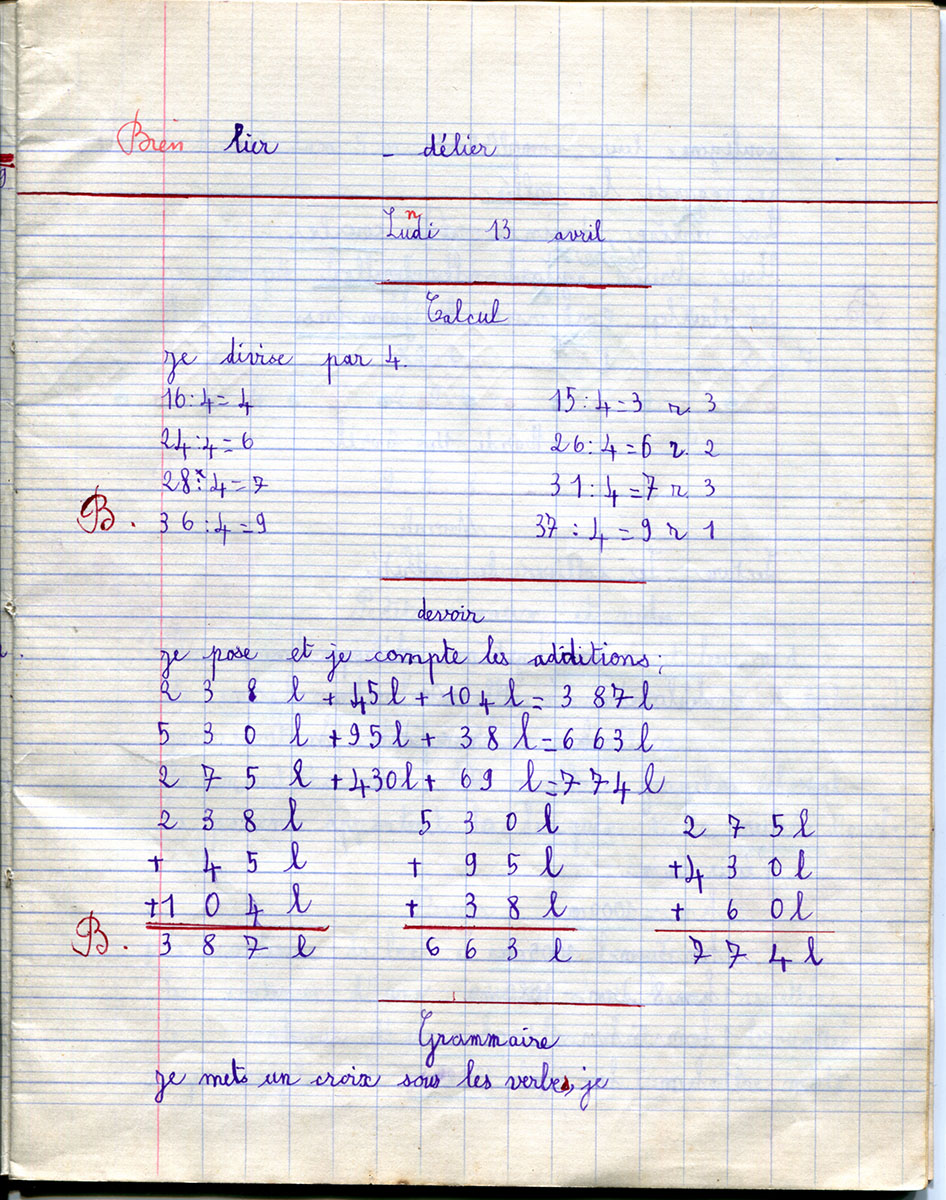 Bien lier - délier
Lundi 13 avril
Calcul
je divise par 4.
16:4=4 15:4=3 r 3
24:4=6 26:4=6 r. 2
28:4=7 31:4=7 r 3
B. 36:4=9 37:4=9 r 1
devoir
je pose et je compte les additions:
238 l +45l + 104l = 387l
530 l +95l + 38l = 663l
275 l +430l + 69 l = 774l
238 l 530 l 275l
+ 45 l + 95 l +430l
+104 l + 38 l + 60l
B. 387 l 663 l 774l
Grammaire
je mets un croix sous les verbes, je